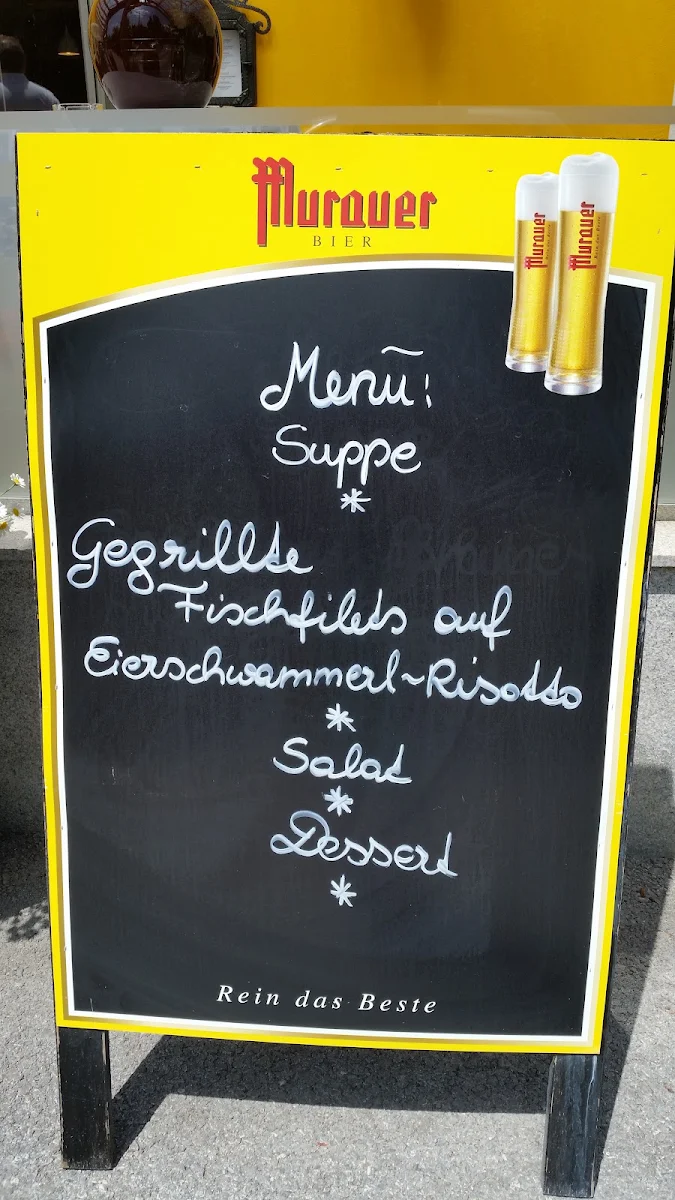 Murauer
BIER
Murauer
Murauer
Menü:
Suppe
*
Gegrillte
Fischfilets auf
Eierschwammerl-Risotto
*
Salat
*
Dessert
*
Rein das Beste